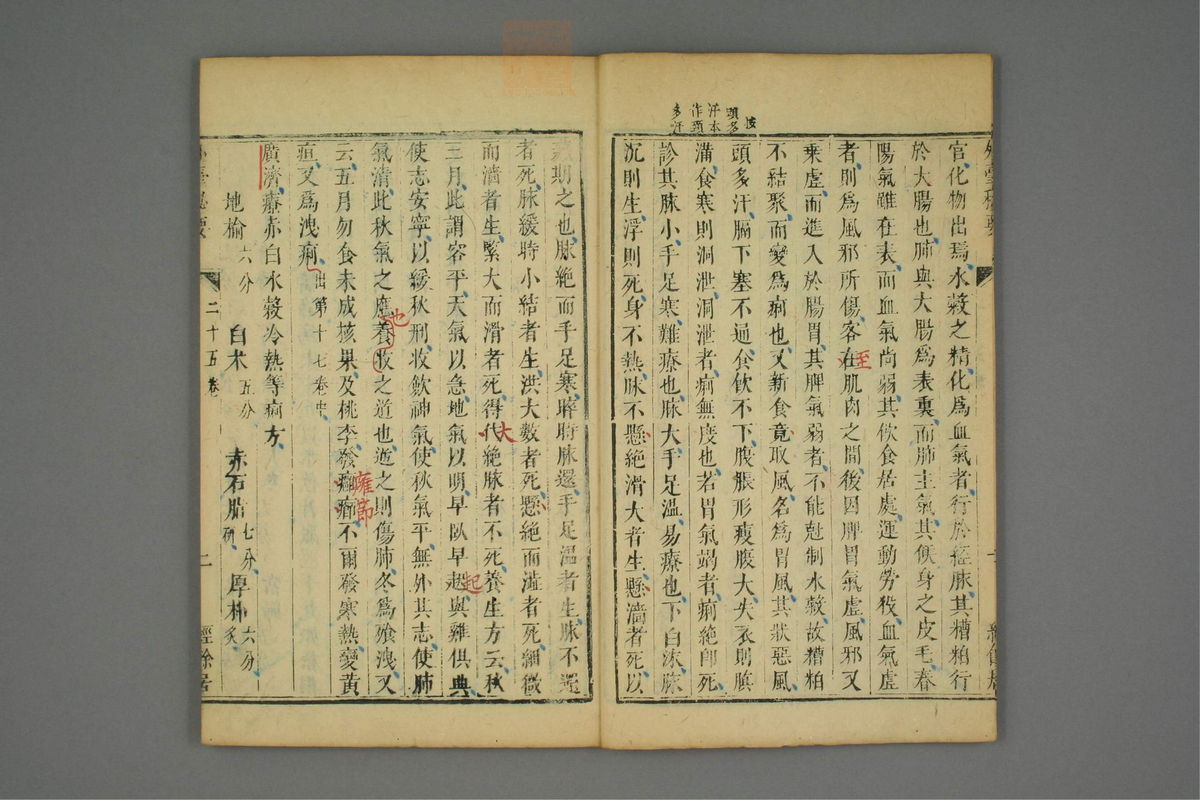 按
頭多
汗本
作頭
多汗
官化物出焉水穀之精化爲血氣者行於經脉其糟粕行
於大腸也肺與大腸爲表裏而肺主氣其候身之皮毛春
陽氣雖在表而血氣尚弱其飲食居處運動勞役血氣虛
者則爲風邪所傷客在肌肉之間後因脾胃氣虛風邪又
至
乗虛而進入於腸胃其脾氣弱者不能尅制水穀故糟粕
不結聚而變爲痢也又新食竟取風名爲胃風其狀惡風
頭多汗膈下塞不通食飲不下腹脹形瘦腹大失衣則䐜
滿食寒則洞泄洞泄者痢無度也若胃氣竭者痢絶即死
診其脉小手足寒難療也脉大手足溫易療也下白沫脉
沉則生浮則死身不熱脉不懸絶滑大者生懸濇者死以
期之也脉絶而手足寒晬時脉還手足溫者生脉不還
者死脉緩時小結者生洪大數者死懸絶而濇者死細微
而濇者生緊大而滑者死得代絶脉者不死養生方云秋
大
三月此謂容平天氣以急地氣以明早臥早起與雞俱典
起
使志安寧以緩秋刑收歛神氣使秋氣平無外其志使肺
氣清此秋氣之應養收之道也逆之則傷肺冬爲飱洩又
也
云五月勿食未成核果及桃李發癰癤不爾發寒熱變黃
癰節
疸又爲洩痢出第十七卷中
廣濟療赤白水穀冷熱等痢方
地榆六分 白朮五分 赤石脂七分研 厚朴六分炙
二十五卷
二
經餘居